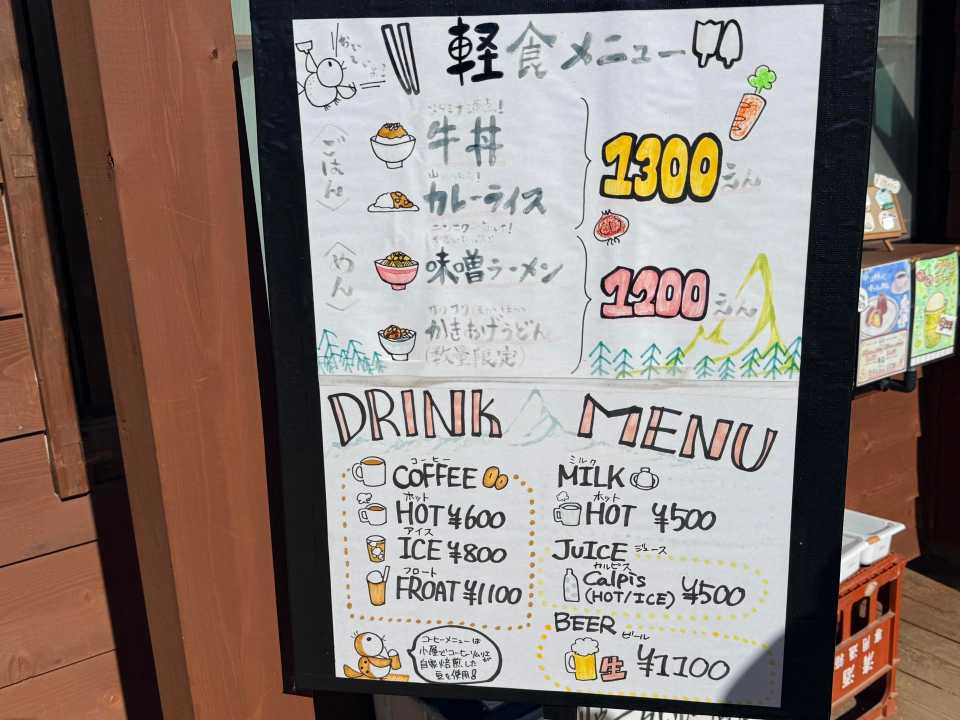 軽食メニュー
〈ごはん〉
スタミナ満点!
牛丼
カレーライス
1300えん
〈めん〉
味噌ラーメン
かきあげうどん
(数量限定)
1200えん
DRINK MENU
コーヒー
COFFEE
ホット
HOT ¥600
アイス
ICE ¥800
フロート
FROAT ¥1100
コーヒーメニューは
小屋でコーヒーソムリエが
自家焙煎した
豆を使用!
ミルク
MILK
ホット
HOT ¥500
JUICE ジュース
カルピス
Calpis
(HOT/ICE) ¥500
BEER ビール
生 ¥1100